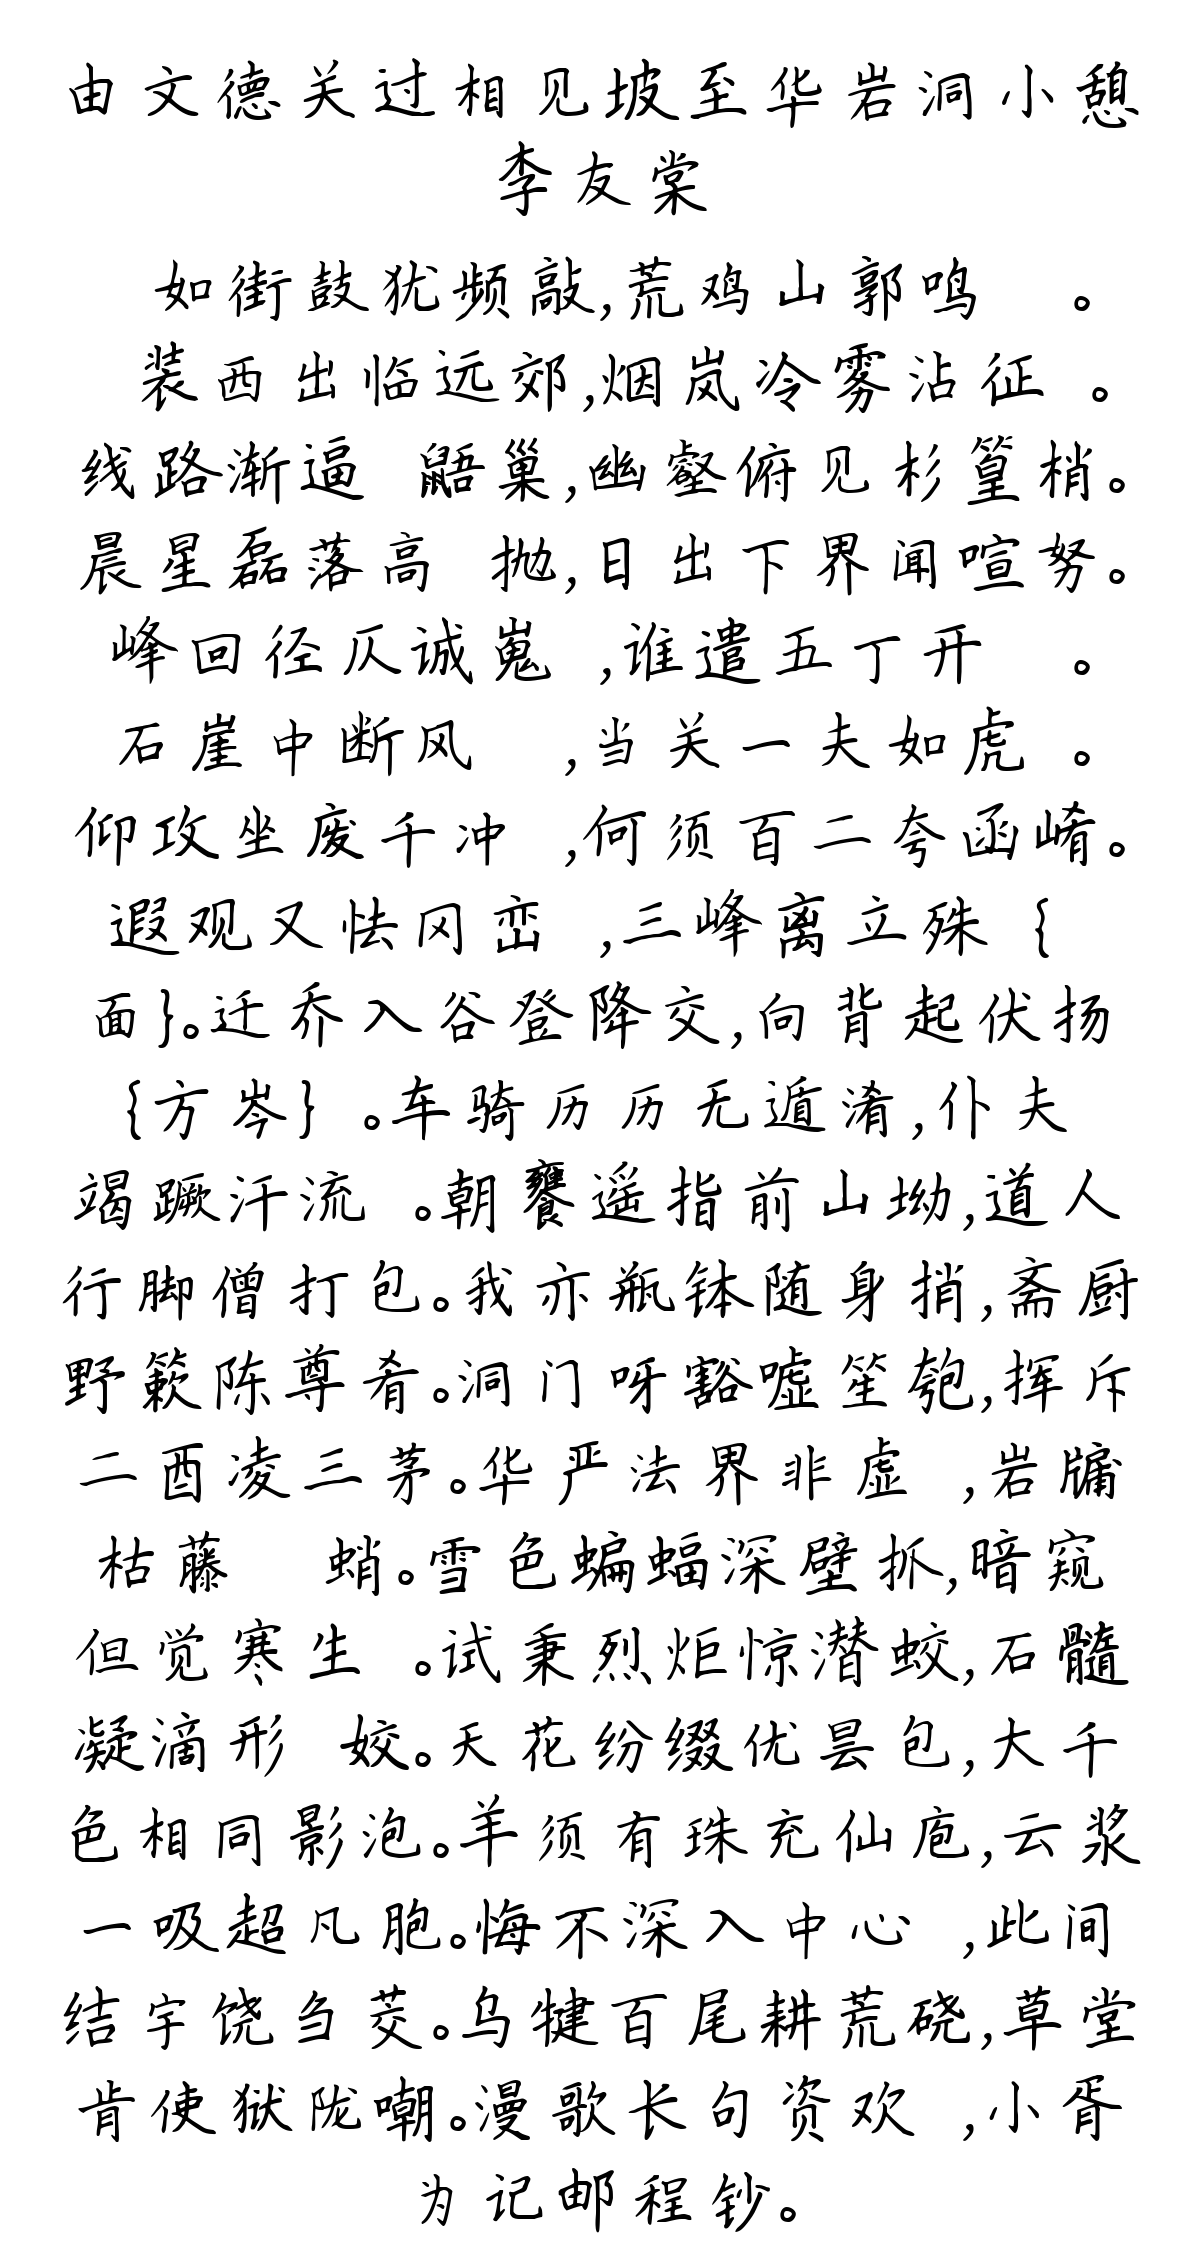 由文德关过相见坡至华岩洞小憩
李友棠
如街鼓犹频敲,荒鸡山郭鸣 。
装西出临远郊,烟岚冷雾沾征 。
线路渐逼 鼯巢,幽壑俯见杉篁梢。
晨星磊落高 抛,日出下界闻喧努。
峰回径仄诚嵬 ,谁遣五丁开 。
石崖中断风 ,当关一夫如虎 。
仰攻坐废千冲 ,何须百二夸函崤。
遐观又怯冈峦 ,三峰离立殊{
面}。迁乔入谷登降交,向背起伏扬
{方岑}。车骑历历无遁淆,仆夫
竭蹶汗流 。朝饔遥指前山坳,道人
行脚僧打包。我亦瓶钵随身捎,斋厨
野蔌陈尊肴。洞门呀豁嘘笙匏,挥斥
二酉凌三茅。华严法界非虚 ,岩牖
枯藤 蛸。雪色蝙蝠深壁抓,暗窥
但觉寒生 。试秉烈炬惊潜蛟,石髓
凝滴形 姣。天花纷缀优昙包,大千
色相同影泡。羊须有珠充仙庖,云浆
一吸超凡胞。悔不深入中心 ,此间
结宇饶刍茭。乌犍百尾耕荒硗,草堂
肯使狱陇嘲。漫歌长句资欢 ,小胥
为记邮程钞。